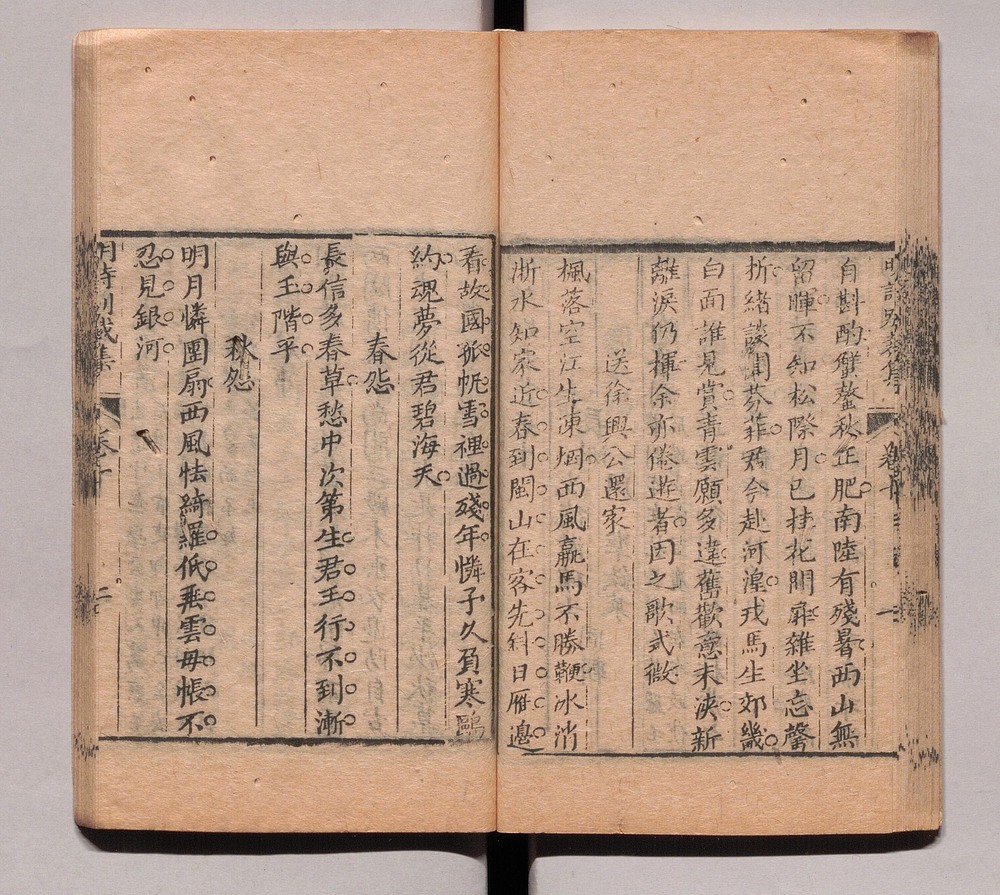 自斟酌蟹螯秋正肥南陸有殘暑西山無
留暉不知松際月已挂花間扉雜坐忘罄
折緒談聞芬菲君今赴河湟戎馬生郊畿
白面誰見賞青雲願多違舊歡意未浹新
離淚仍揮余亦倦遊者因之歌式微
送徐興公還家
楓落空江生凍烟西風羸馬不勝鞭冰消
浙水知家近春到閩山在客先斜日雁邊
看故國孤帆雪裡過殘年憐予久負寒鷗
約魂夢從君碧海天
春怨
長信多春草愁中次第生君王行不到漸
與玉階平
秋怨
明月憐團扇西風怯綺羅低垂雲母帳不
忍見銀河
明詩別裁集 卷十 二